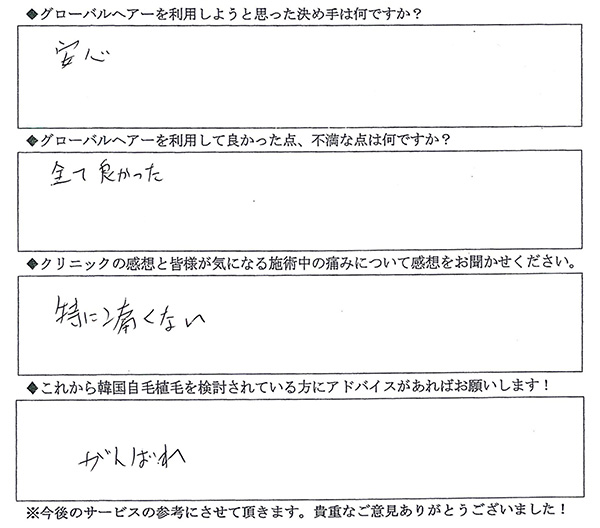 ◆グローバルヘアーを利用しようと思った決め手は何ですか？
安心
◆グローバルヘアーを利用して良かった点、不満な点は何ですか？
全て良かった
◆クリニックの感想と皆様が気になる施術中の痛みについて感想をお聞かせください。
特に痛くない
◆これから韓国自毛植毛を検討されている方にアドバイスがあればお願いします！
がんばれ
※今後のサービスの参考にさせて頂きます。貴重なご意見ありがとうございました！